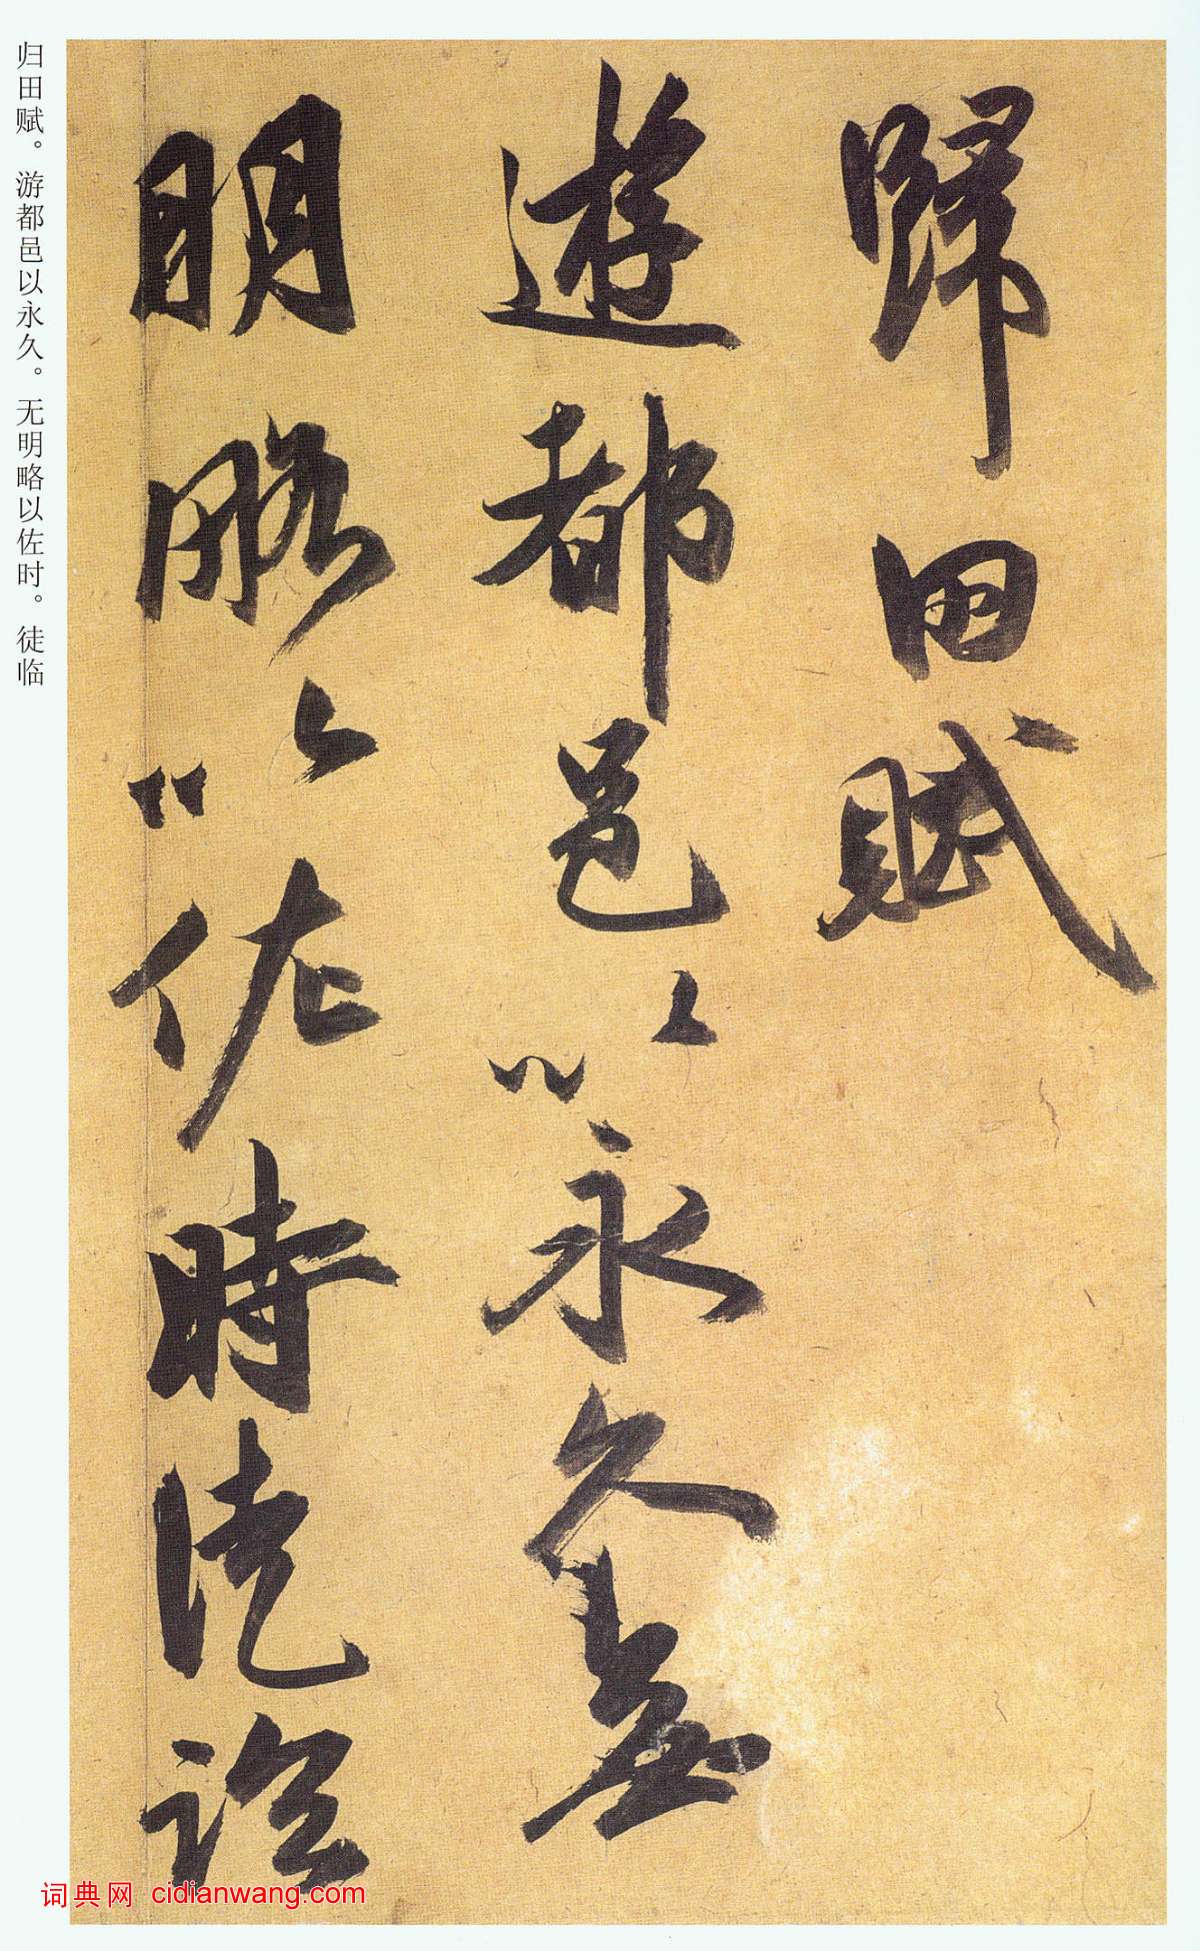 歸田賦
遊都邑以永久無
明略以佐時徒臨
归田赋。游都邑以永久。无明略以佐时。徒临
词典网 cidianwang.com